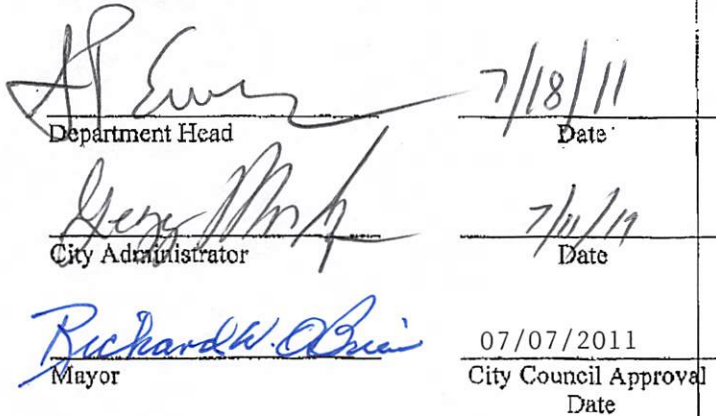 7/18/11
Department Head Date
City Administrator Date
Richard W. OBrien 07/07/2011
Mayor City Council Approval
Date